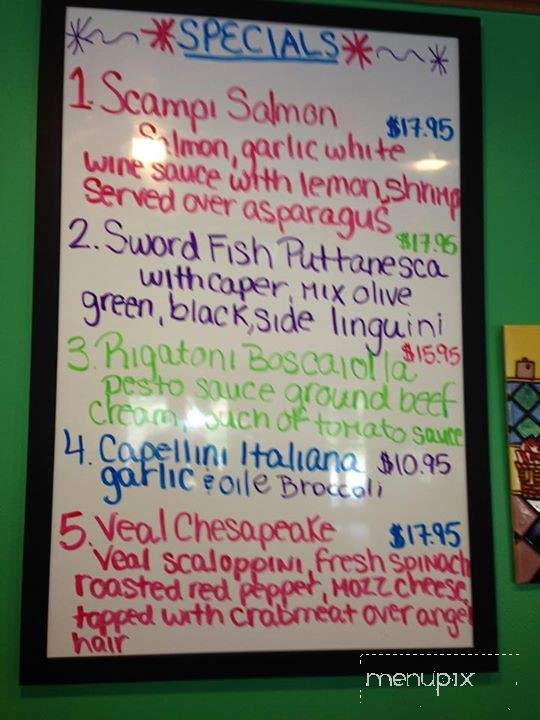 SPECIALS
1. Scampi Salmon
$17.95
Salmon, garlic white
wine sauce with lemon, shrimp
Served over asparagus
$17.95
2. Sword Fish Puttanesca
with caper, mix olive
green, black, side linguini
3. Rigatoni Boscaiolla
$15.95
pesto sauce ground beef
cream, touch of tomato sauce
4. Capellini Italiana $10.95
garlic & oile Broccoli
5. Veal Chesapeake $17.95
Veal scaloppini, fresh spinach
roasted red pepper, Mozz cheese,
topped with crabmeat over angel
hair
menupix